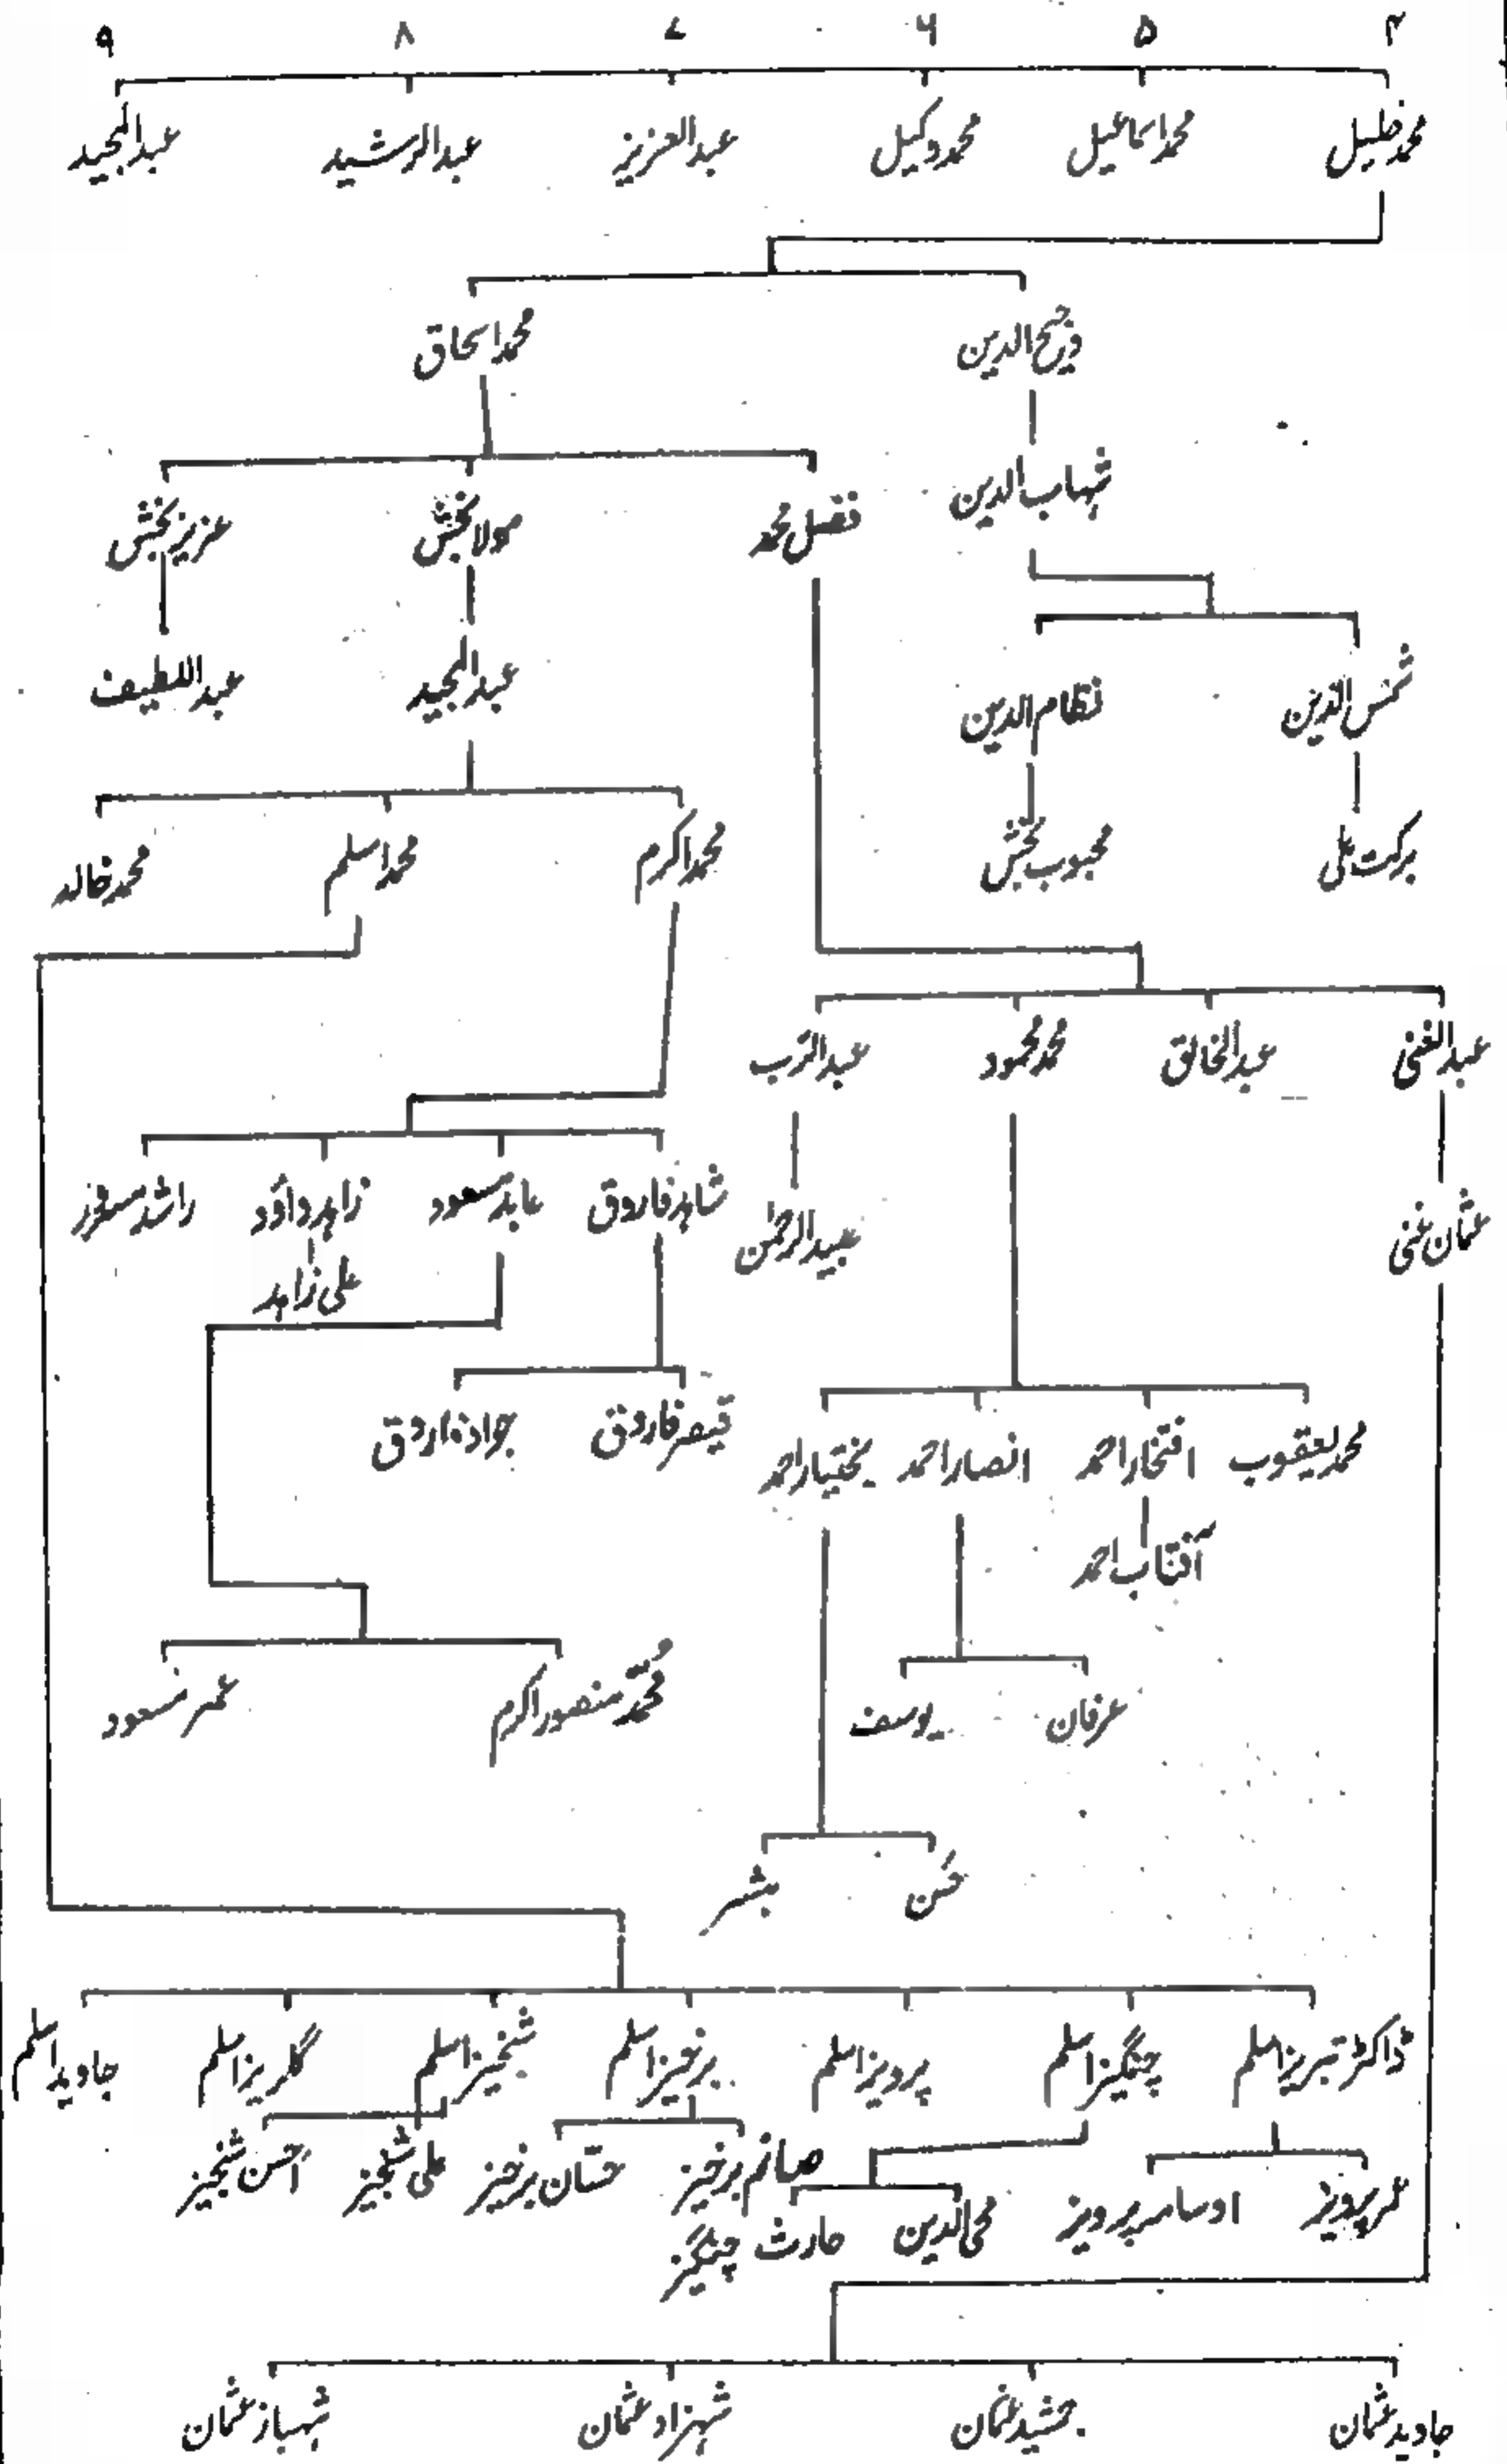 ۴ ۵ ۶ ۷ ۸ ۹
محمد خلیل محمد اسماعیل محمد وکیل عبدالعزیز عبدالرشید عبدالمجید
محمد اسحاق
شہاب الدین
فضل محمد مولا بخش عزیز بخش
شمس الدین نظام الدین عبدالمجید عبداللطیف
برکت علی محبوب بخش محمد اکرم محمد اسلم محمد خالد
عبدالغنی عبدالخالق محمد محمود عبدالرب
عثمان غنی عبیدالرحمٰن شاہد فاروق عابد مسعود زاہد داؤد راشد سرور
علی زاہد
محمد یعقوب افتخار احمد انصار احمد بختیار احمد قیصر فاروق جواد فاروق
آفتاب احمد
عرفان یوسف محمد منصور اکرم عمر مسعود
حسن مبشر
ڈاکٹر تبریز اسلم چنگیز اسلم پرویز اسلم برخیز اسلم شبخیز اسلم گلریز اسلم جاوید اسلم
عمر پرویز اوسامہ پرویز محی الدین حارث چنگیز صائم برخیز حسّان برخیز علی شبخیز احسن شبخیز
جاوید عثمان جمشید عثمان شہزاد عثمان شہباز عثمان